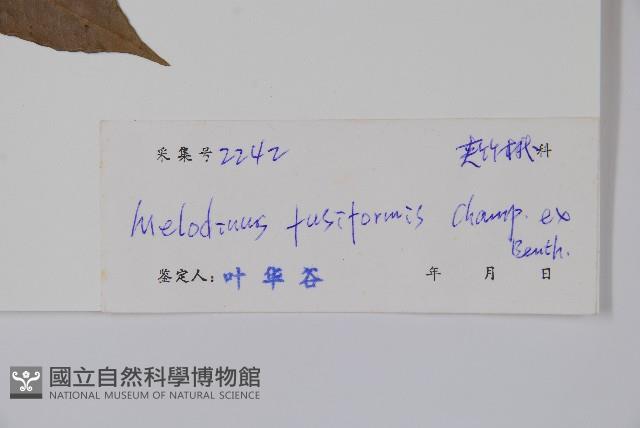 采集号 2242 夹竹桃科
Melodinus fusiformis Champ. ex
Benth.
鉴定人: 叶华谷 年 月 日
國立自然科學博物館
NATIONAL MUSEUM OF NATURAL SCIENCE